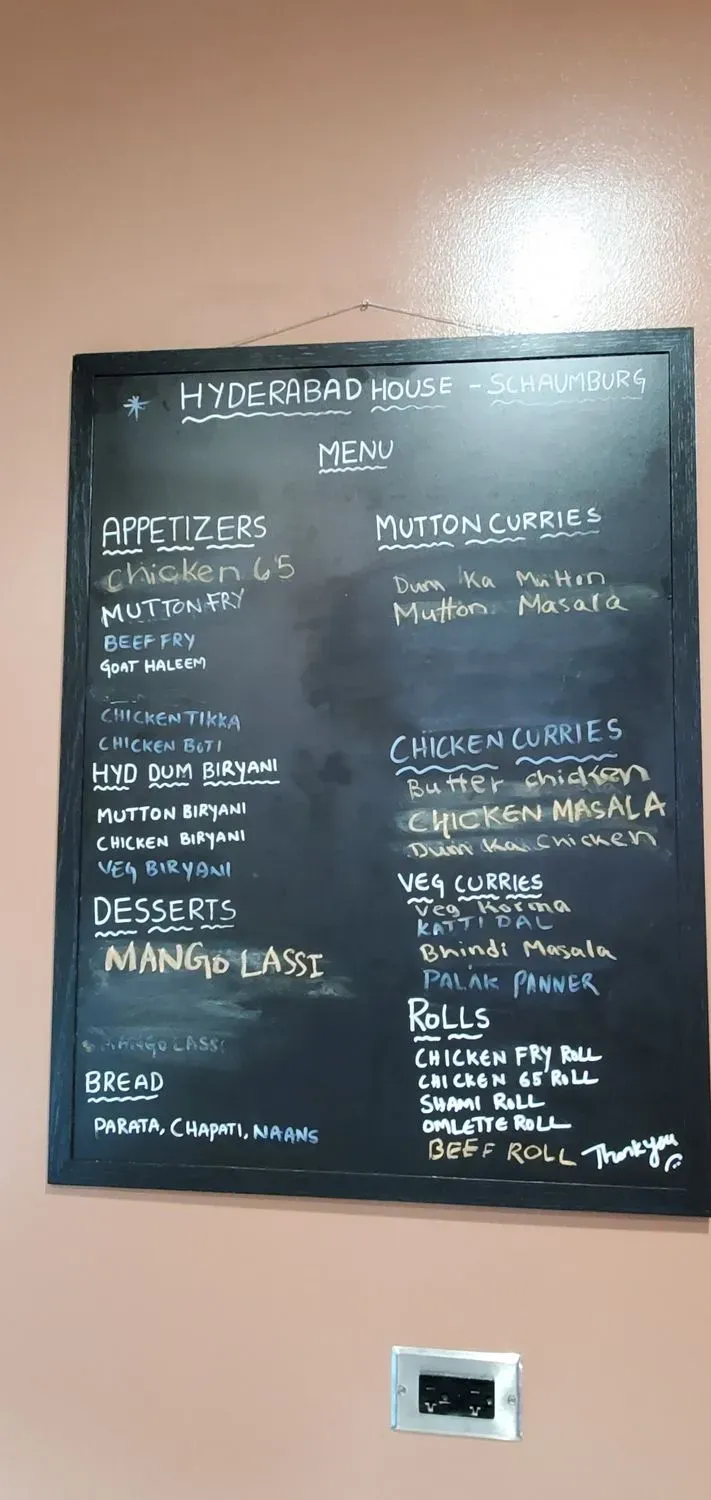 * HYDERABAD HOUSE - SCHAUMBURG
MENU
APPETIZERS
Chicken 65
MUTTON FRY
BEEF FRY
GOAT HALEEM
CHICKEN TIKKA
CHICKEN BOTI
HYD DUM BIRYANI
MUTTON BIRYANI
CHICKEN BIRYANI
VEG BIRYANI
DESSERTS
MANGO LASSI
MANGO LASSI
BREAD
PARATA, CHAPATI, NAANS
MUTTON CURRIES
Dum Ka Mutton
Mutton Masala
CHICKEN CURRIES
Butter chicken
CHICKEN MASALA
Dum Ka Chicken
VEG CURRIES
Veg Korma
KATTI DAL
Bhindi Masala
PALAK PANNER
ROLLS
CHICKEN FRY ROLL
CHICKEN 65 ROLL
SHAMI ROLL
OMLETTE ROLL
BEEF ROLL
Thank you